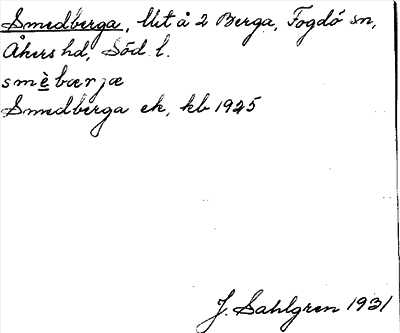 Smedberga, lht å 2 Berga, Fogdö sn,
Åkers hd, Söd l.
smèbærjæ
Smedberga ek, kb 1925
J. Sahlgren 1931